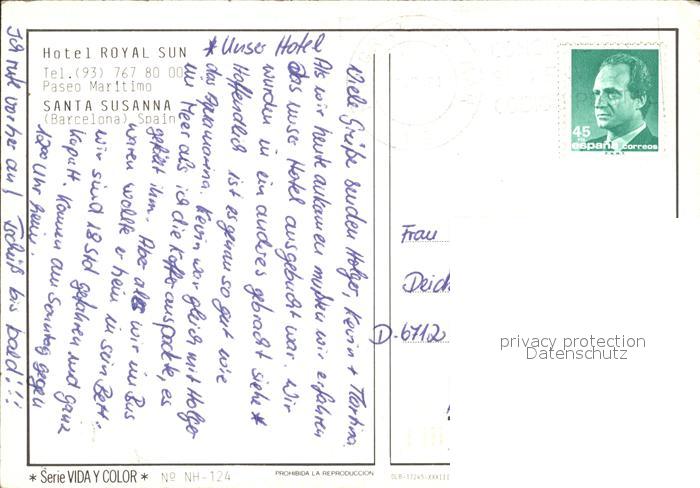 Hotel ROYAL SUN
Tel.(93) 767 80 00
Paseo Marítimo
SANTA SUSANNA
(Barcelona) Spain
* Unser Hotel
Viele Grüße senden Holger, Kevin + Martina
Als wir heute ankamen mußten wir erfahren
das unser Hotel ausgebucht war. Wir
wurden in ein anderes gebracht siehe *
Hoffendlich ist es genau so gut wie
das Kevin war gleich mit Holger
im Meer als ich die Koffer auspackte, es
gefällt ihm. Aber als wir im Bus
waren wollte er heim in sein Bett.
wir sind 18 Std gefahren und ganz
kaputt. Kommen am Sonntag gegen
1200 Uhr heim.
Ich rufe vorher an! Tschüß bis bald!!!
45
PTA
españa correos
F.N.M.T.
Frau
Deich
D-6712
privacy protection
Datenschutz
* Serie VIDA Y COLOR * Nº NH-124
PROHIBIDA LA REPRODUCCION